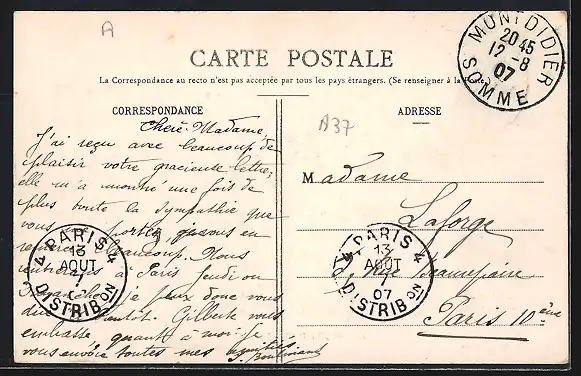 A
CARTE POSTALE
La Correspondance au recto n'est pas acceptée par tous les pays étrangers. (Se renseigner à la Poste.)
MONTDIDIER
20 45
12 -8
07
SOMME
CORRESPONDANCE
ADRESSE
A37
Chère Madame,
J'ai reçu avec beaucoup de
plaisir votre gracieuse lettre;
elle m'a montré une fois de
plus toute la sympathie que
vous portez je vous en
remercie beaucoup. Nous
rentrerons à Paris Jeudi ou
Dimanche; je peux donc vous
dire bientôt. Gilberte vous
embrasse, quant à moi je
vous envoie toutes mes amitiés
Madame
Laforge
5, Rue Beaurepaire
Paris 10ème
PARIS 4
13
AOUT
7
4 DISTRIBON
PARIS 4
13
AOUT
7
07
4 DISTRIBON